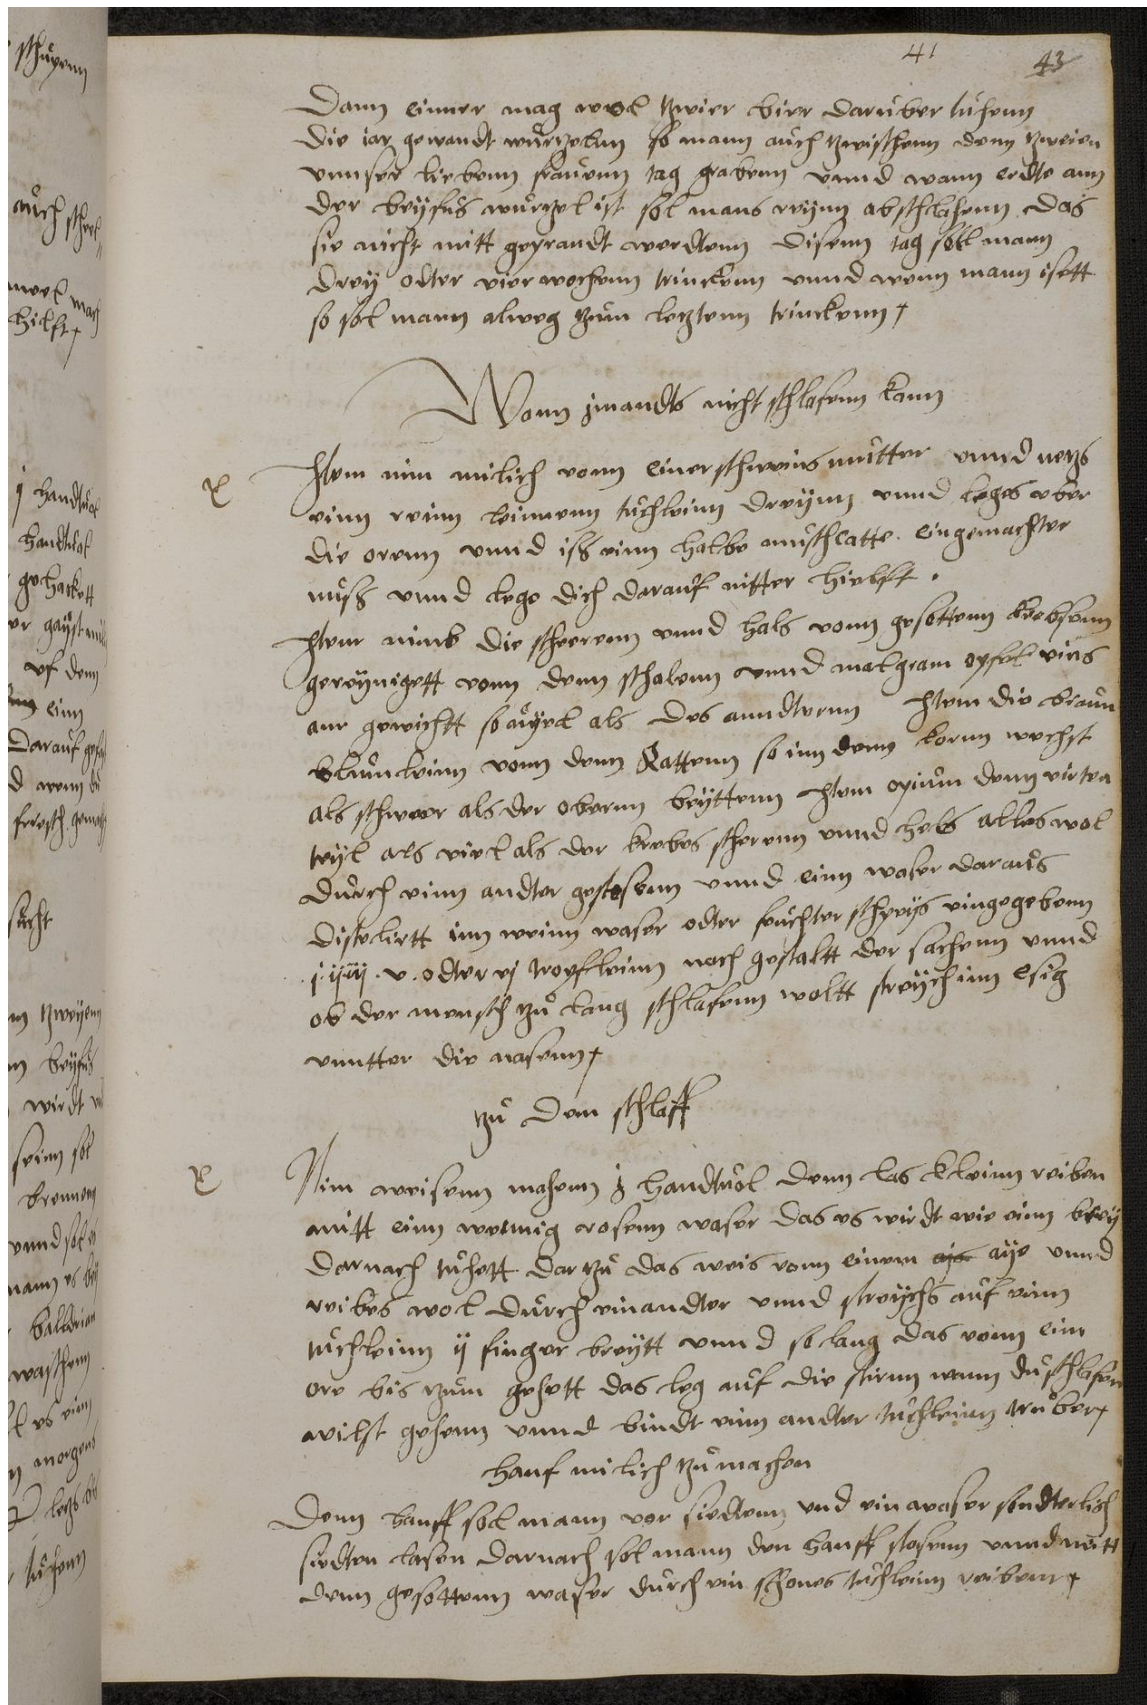 41
43
Dann einner mag wol tzwier bier darüber tuhenn
die iar gewandt wurtzelnn so mann auch tzwischenn denn tzweien
vnnser liebenn frauenn tag grabenn vnnd wann erdte ann
der beyfus wurtzel ist sol mans reynn abschlahenn das
sie nicht mitt geprandt werdtenn disenn tag soll mann
drey odter vier wochenn trinckenn vnnd wenn mann isett
so sol mann alweg tzum letztenn trinckenn
Wenn jmandts nicht schlafenn kann
Item nim milich vonn einer schweins mutter vnnd netzs
einn reinn leinnenn tuchleinn dreynn vnnd leges vber
die orenn vnnd iss einn halbe muschcatte eingemachter
nuss vnnd lege dich darauf nitter hielft.
Item nimb die scherenn vnnd hals vonn gesottenn krebsenn
gereynigett vonn denn schalenn vnnd malgram opfel eins
am gewichtt so auyel als des anndternn Item die braun
blumleinn vonn denn Rattenn so inn denn kornn wechst
als schwer als der obernn beyttenn Item opium denn virten
teyl als viel als der krebes scherenn vnnd hebs alles wol
durch einn andter gestosenn vnnd einn waser daraus
distelirtt inn weinn waser odter feuchter speys eingegebenn
.j. iiij. v. odter vj tropfleinn nach gestaltt der sachenn vnnd
ob der mensch tzu lang schlafenn woltt streych im esig
vnntter die nasenn
tzu dem schlaff
Nim weisenn mahenn j handtuol denn las kleinn reiben
mitt einn wennig rosenn waser das es wirdt wie einn brey
darnach tuhett dar tzu das weis vonn einem aye vnnd
reibes wol durch einandter vnnd streychs auf einn
tuchleinn ij finger breytt vnnd so lang das vonn eim
ore bis tzum gehett das leg auf die stirnn wenn du schlafenn
wilst gehenn vnnd bindt einn andter tuchleinn truber
hanf milich tzu machen
Denn hanff sol mann vor siedtenn vnd ein waser sondterlich
siedten lasen darnach sol mann den hanff stosenn vnnd mitt
denn gesottenn waser durch ein schones tuchleinn reibenn